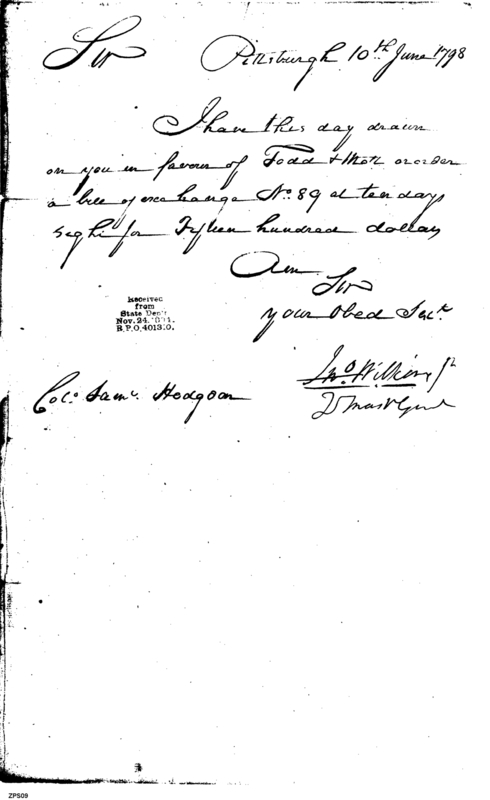 Sir Pittsburgh 10th June 1798
I have this day drawn
on you in favour of Todd & Mott or order
a bill of exchange No. 89 at ten days
seght for Fifteen hundred dollars
Am
Sir
your Obed Servt.
Jno. Wilkins Jr
Q Mastr Genl
Colo. Saml. Hodgdon
Received
from
State Dep't
Nov. 24.
B.P.O. 401310.
ZPS09